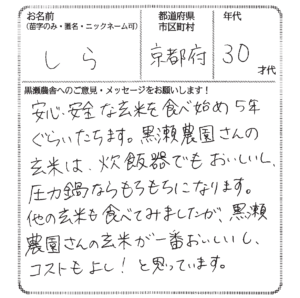 お名前
(苗字のみ・匿名・ニックネーム可)
しら
都道府県
市区町村
京都府
年代
30
才代
黒瀬農舎へのご意見・メッセージをお願いします!
安心・安全な玄米を食べ始め5年
ぐらいたちます。黒瀬農園さんの
玄米は、炊飯器でもおいしいし、
圧力鍋ならもちもちになります。
他の玄米も食べてみましたが、黒瀬
農園さんの玄米が一番おいしいし、
コストもよし!と思っています。